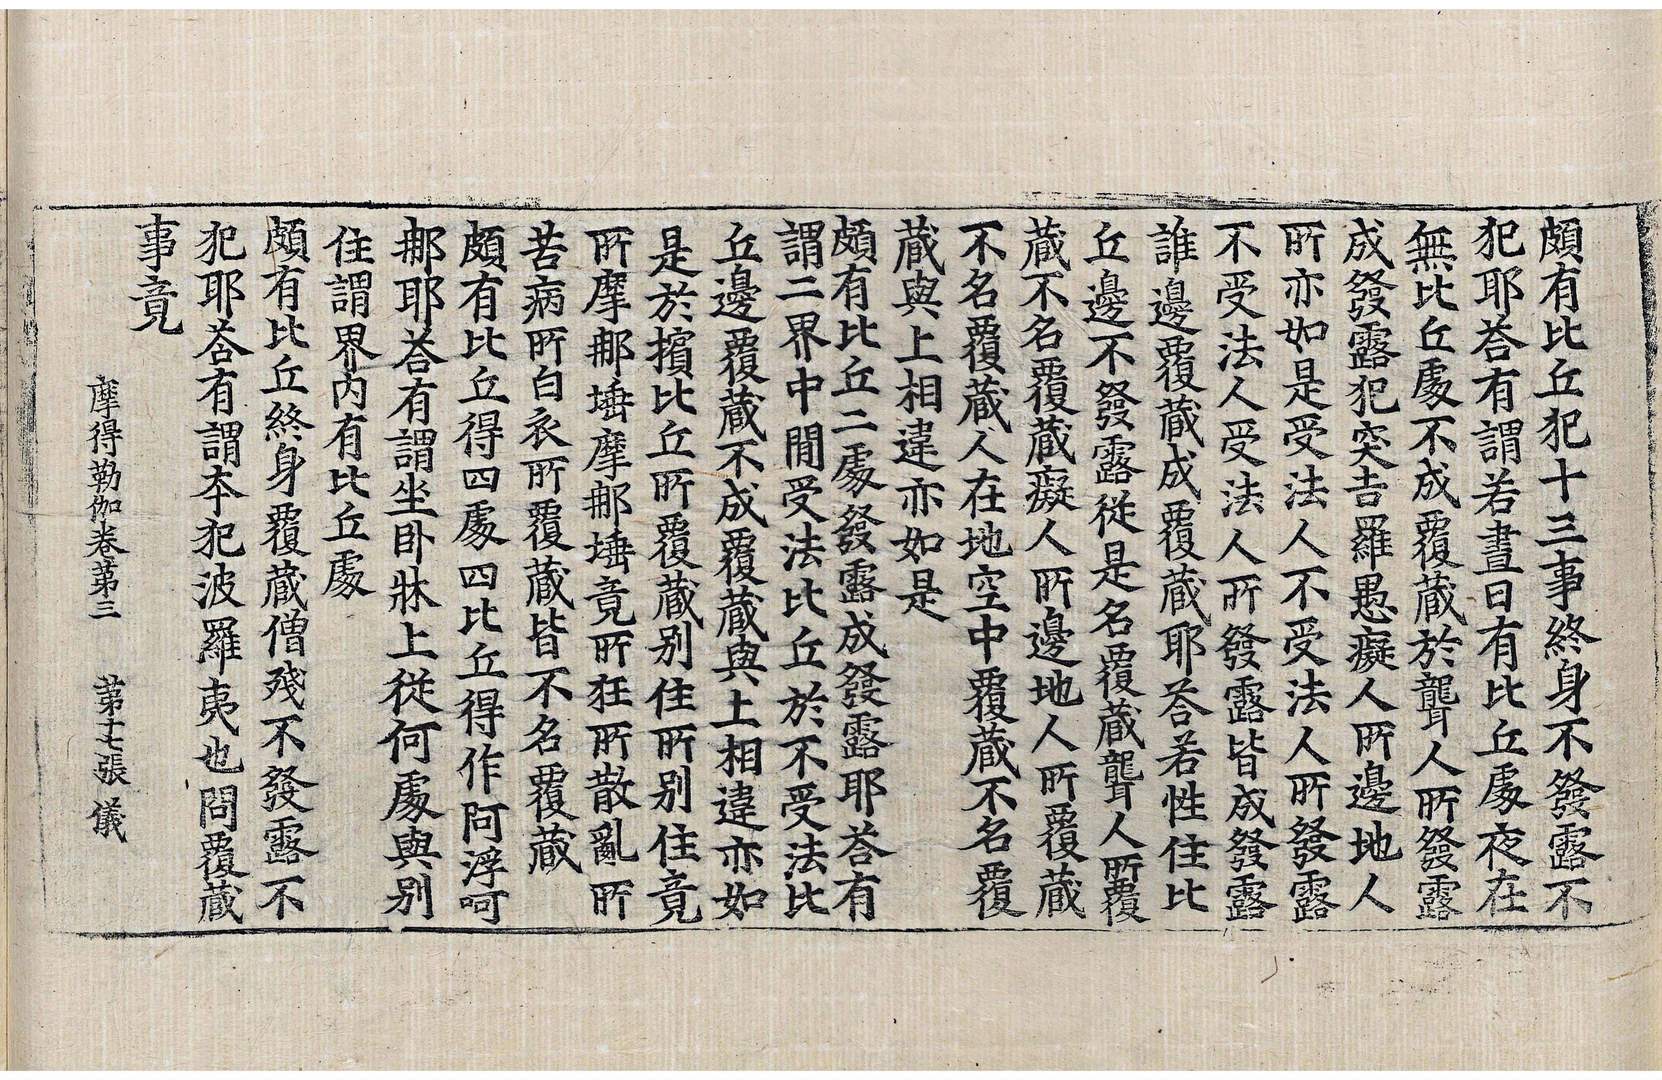 頗有比丘犯十三事終身不發露不
犯耶荅有謂若晝日有比丘處夜在
無比丘處不成覆蔵於聾人所發露
成發露犯突吉羅愚癡人所邊地人
所亦如是受法人不受法人所發露
不受法人受法人所發露皆成發露
誰邊覆蔵成覆蔵耶荅若性住比
丘邊不發露從是名覆蔵聾人所覆
蔵不名覆蔵癡人所邊地人所覆蔵
不名覆蔵人在地空中覆蔵不名覆
蔵與上相違亦如是
頗有比丘二處發露成發露耶荅有
謂二界中間受法比丘於不受法比
丘邊覆蔵不成覆蔵與上相違亦如
是於擯比丘所覆蔵別住所別住竟
所摩那埵摩那埵竟所狂所散亂所
苦病所白衣所覆蔵皆不名覆蔵
頗有比丘得四處四比丘得作阿浮呵
那耶荅有謂坐卧牀上從何處與別
住謂界内有比丘處
頗有比丘終身覆蔵僧殘不發露不
犯耶荅有謂夲犯波羅夷也問覆蔵
事竟
摩得勒伽卷第三 第十七張 儀